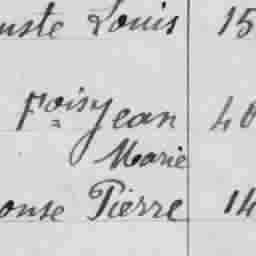 uste Louis 15
Foisy Jean 40
Marie
onse Pierre 14